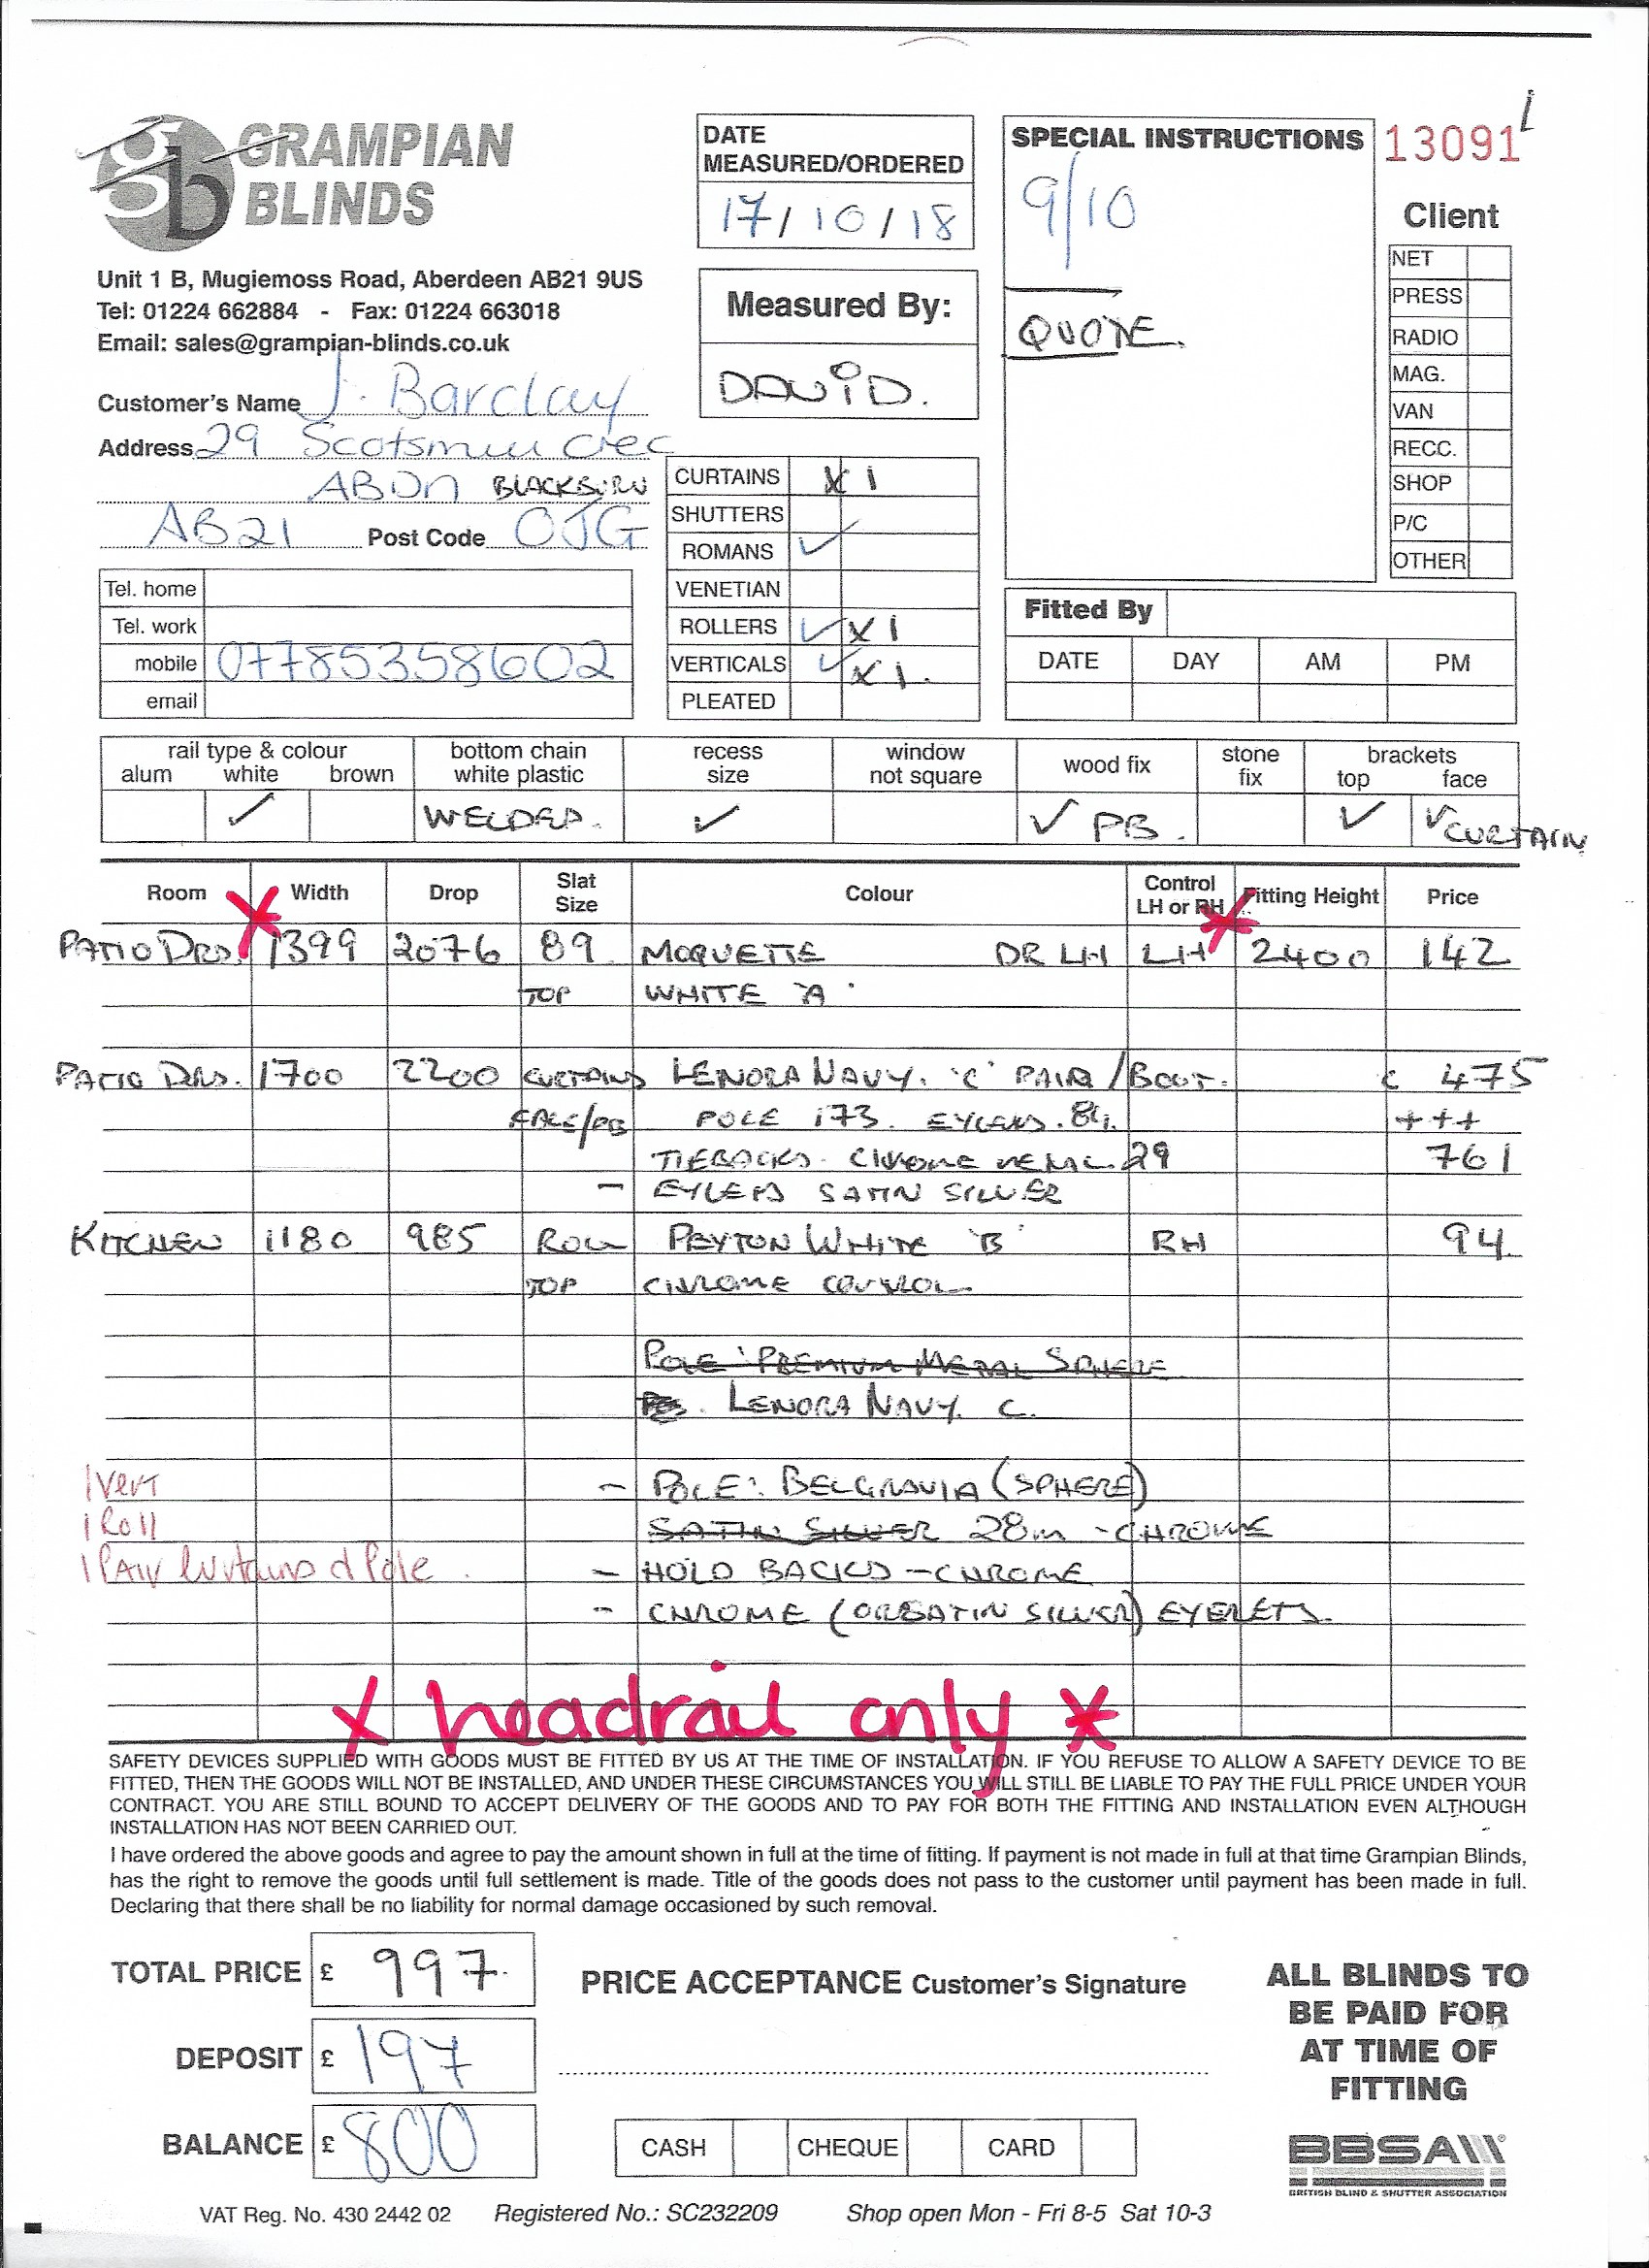 GRAMPIAN
BLINDS
Unit 1 B, Mugiemoss Road, Aberdeen AB21 9US
Tel: 01224 662884 - Fax: 01224 663018
Email: sales@grampian-blinds.co.uk
Customer's Name J. Barclay
Address 29 Scotsmill Cres
ABDN BLACKBURN
AB21 Post Code 0JG
Tel. home
Tel. work
mobile 07785358602
email
DATE
MEASURED/ORDERED
17/10/18
Measured By:
DAVID.
CURTAINS X 1
SHUTTERS
ROMANS ✓
VENETIAN
ROLLERS ✓ X 1
VERTICALS ✓ X 1.
PLEATED
SPECIAL INSTRUCTIONS
9/10
QUOTE.
13091
Client
NET
PRESS
RADIO
MAG.
VAN
RECC.
SHOP
P/C
OTHER
Fitted By
DATE DAY AM PM
rail type & colour bottom chain recess window wood fix stone brackets
alum white brown white plastic size not square fix top face
✓ WELDED. ✓ ✓ PB. ✓ ✓ CURTAIN
Room Width Drop Slat Size Colour Control LH or RH Fitting Height Price
PATIO DRS. 1399 2076 89 MOQUETTE DR LH LH 2400 142
TOP WHITE 'A'
PATIO DRS. 1700 2200 CURTAINS LENORA NAVY. 'C' PAIR / BOUT. 475
FACE/PB POLE 173. EYELETS. 84. +++
TIEBACKS - CHROME METAL. 29 761
- EYLETS SATIN SILVER
KITCHEN 1180 985 ROLL PEYTON WHITE 'B' RH 94
TOP CHROME CONTROL.
POLE 'PREMIUM METAL SPHERE
LENORA NAVY. C.
1 Vert - POLE: BELGRAVIA (SPHERE)
1 Roll SATIN SILVER 28m - CHROME
1 Pair Curtains & Pole. - HOLD BACKS - CHROME
- CHROME (OR SATIN SILVER) EYELETS.
X headrail only *
SAFETY DEVICES SUPPLIED WITH GOODS MUST BE FITTED BY US AT THE TIME OF INSTALLATION. IF YOU REFUSE TO ALLOW A SAFETY DEVICE TO BE
FITTED, THEN THE GOODS WILL NOT BE INSTALLED, AND UNDER THESE CIRCUMSTANCES YOU WILL STILL BE LIABLE TO PAY THE FULL PRICE UNDER YOUR
CONTRACT. YOU ARE STILL BOUND TO ACCEPT DELIVERY OF THE GOODS AND TO PAY FOR BOTH THE FITTING AND INSTALLATION EVEN ALTHOUGH
INSTALLATION HAS NOT BEEN CARRIED OUT.
I have ordered the above goods and agree to pay the amount shown in full at the time of fitting. If payment is not made in full at that time Grampian Blinds,
has the right to remove the goods until full settlement is made. Title of the goods does not pass to the customer until payment has been made in full.
Declaring that there shall be no liability for normal damage occasioned by such removal.
TOTAL PRICE £ 997.
DEPOSIT £ 197
BALANCE £ 800
PRICE ACCEPTANCE Customer's Signature
CASH CHEQUE CARD
ALL BLINDS TO
BE PAID FOR
AT TIME OF
FITTING
BBSA
BRITISH BLIND & SHUTTER ASSOCIATION
VAT Reg. No. 430 2442 02 Registered No.: SC232209 Shop open Mon - Fri 8-5 Sat 10-3